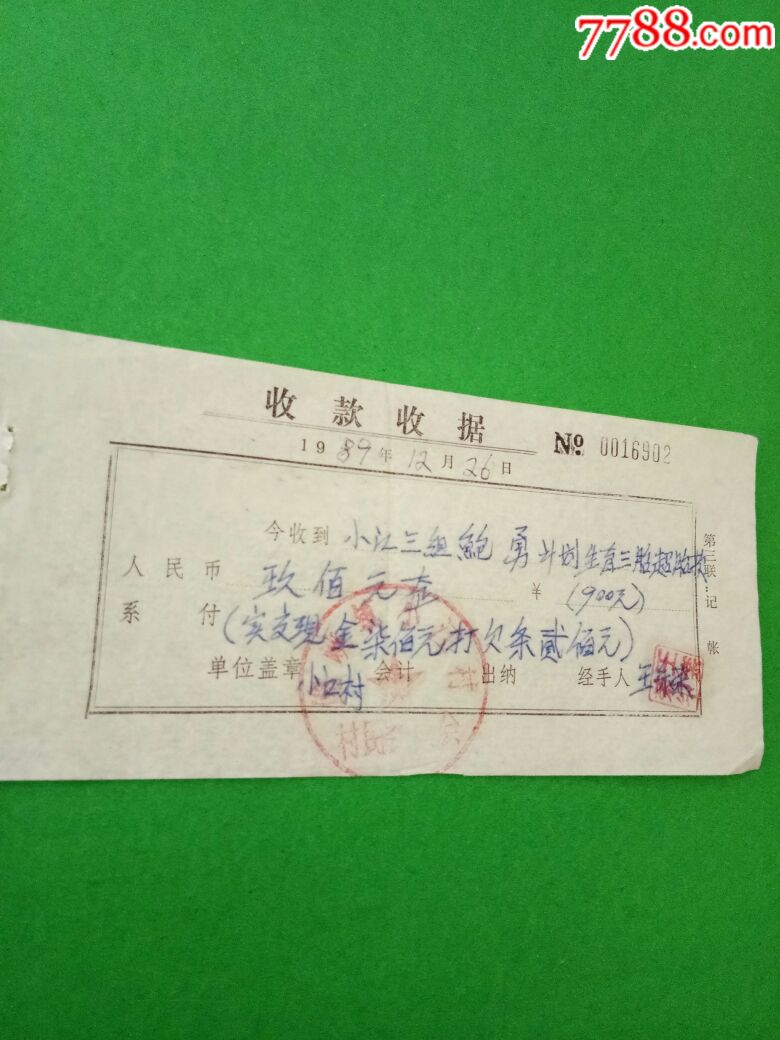 7788.com
收款收据 № 0016902
1989年12月26日
今收到 小江三组鲍勇计划生育三胎超胎款
人民币 玖佰元正 ¥ (900元)
系付 (实支现金柒佰元打欠条贰佰元)
单位盖章 小江村 会计 出纳 经手人 王
第三联：记帐
村民